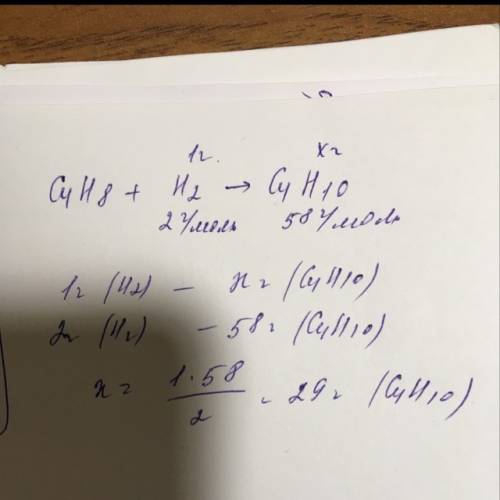 1г. xг
C4H8 + H2 → C4H10
2г/моль 58г/моль
1г (H2) — xг (C4H10)
2г (H2) — 58г (C4H10)
x = 1·58 / 2 = 29г (C4H10)